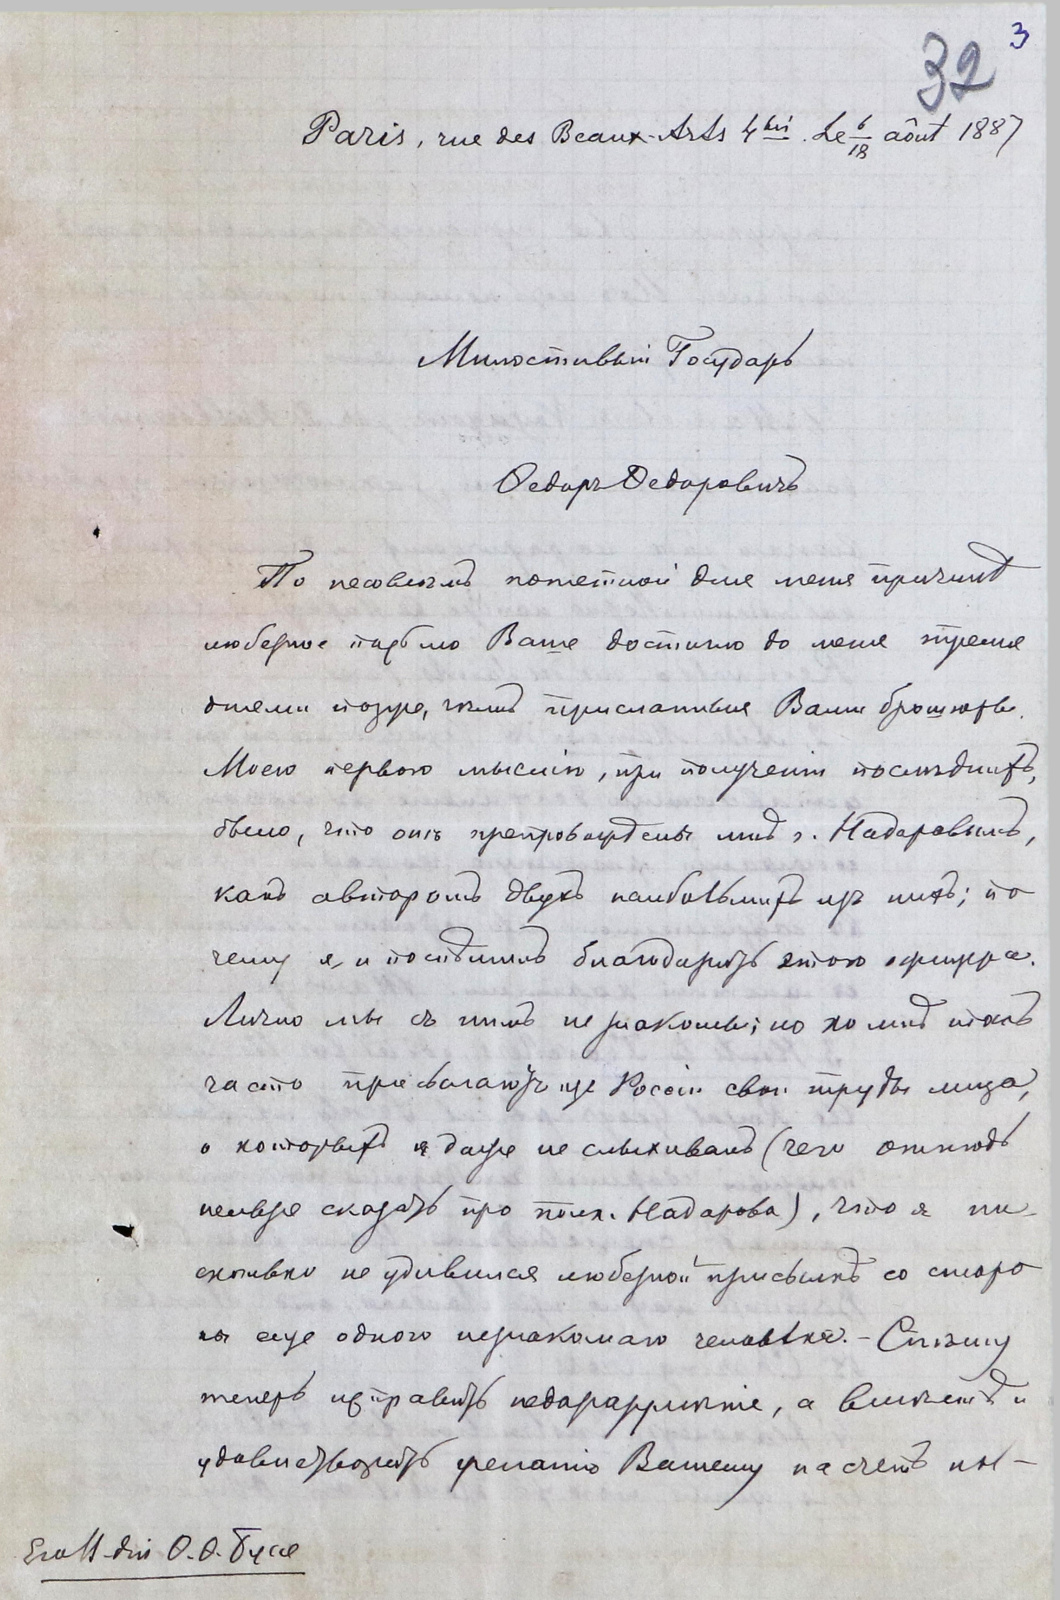 3
32
Paris, rue des Beaux-Arts 4 bis. Le 6/18 août 1887
Милостивый Государь
Ѳедоръ Ѳедоровичъ
По несовсѣмъ понятной для меня причинѣ
любезное письмо Ваше достигло до меня тремя
днями позже, чѣмъ присланныя Вами брошюры.
Моею первою мыслію, при полученіи послѣднихъ,
было, что онѣ препровождены мнѣ г. Надаровымъ,
какъ авторомъ двухъ наибольшихъ изъ нихъ; по
чему я и поспѣшилъ благодарить этого офицера.
Лично мы съ нимъ не знакомы; но ко мнѣ такъ
часто присылаютъ изъ Россіи свои труды лица,
о которыхъ я даже не слыхивалъ (чего отнюдь
нельзя сказать про полк. Надарова), что я ни-
сколько не удивился любезной присылкѣ со сторо
ны еще одного незнакомаго человѣка. – Спѣшу
теперь исправить недоразумѣніе, а вмѣстѣ и
удовлетворить желанію Вашему на счетъ мы-
Его В-дію Ѳ. Ѳ. Буссе